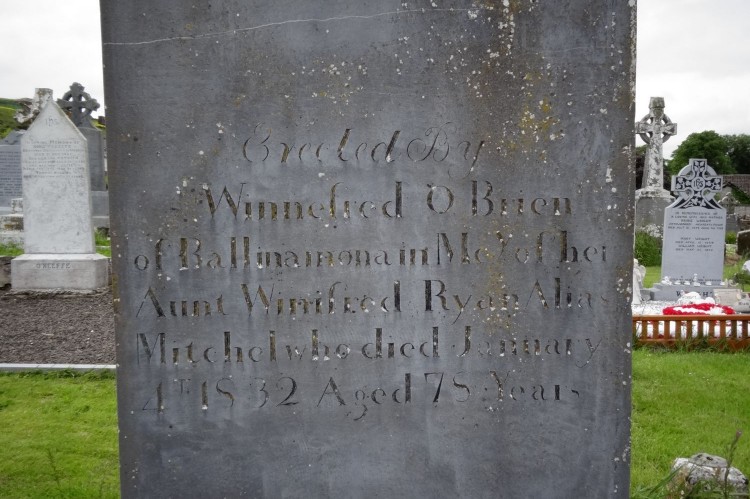 Erected By
Winnefred O'Brien
of Ballinamona in Me.y of her
Aunt Winifred Ryan Alias
Mitchel who died January
4th 1832 Aged 78 Years
O'KEEFFE